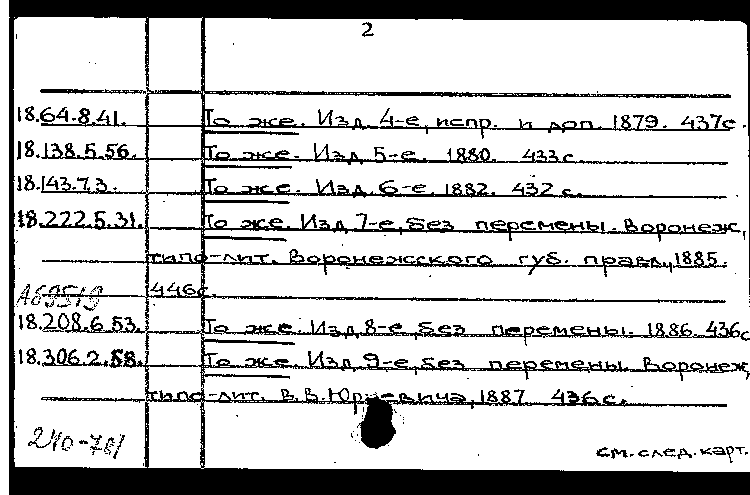 2
18.64.8.41. То же. Изд. 4-е, испр. и доп. 1879. 437с.
18.138.5.56. То же. Изд. 5-е. 1880. 433с.
18.143.7.3. То же. Изд. 6-е. 1882. 432с.
18.222.5.31. То же. Изд. 7-е, без перемены. Воронеж,
типо-лит. Воронежского губ. правл., 1885.
А69519 446с.
18.208.6.53. То же. Изд. 8-е, без перемены. 1886. 436с
18.306.2.58. То же. Изд. 9-е, без перемены. Воронеж,
типо-лит. В.В.Юркевича, 1887. 436с.
240-761
см. след. карт.